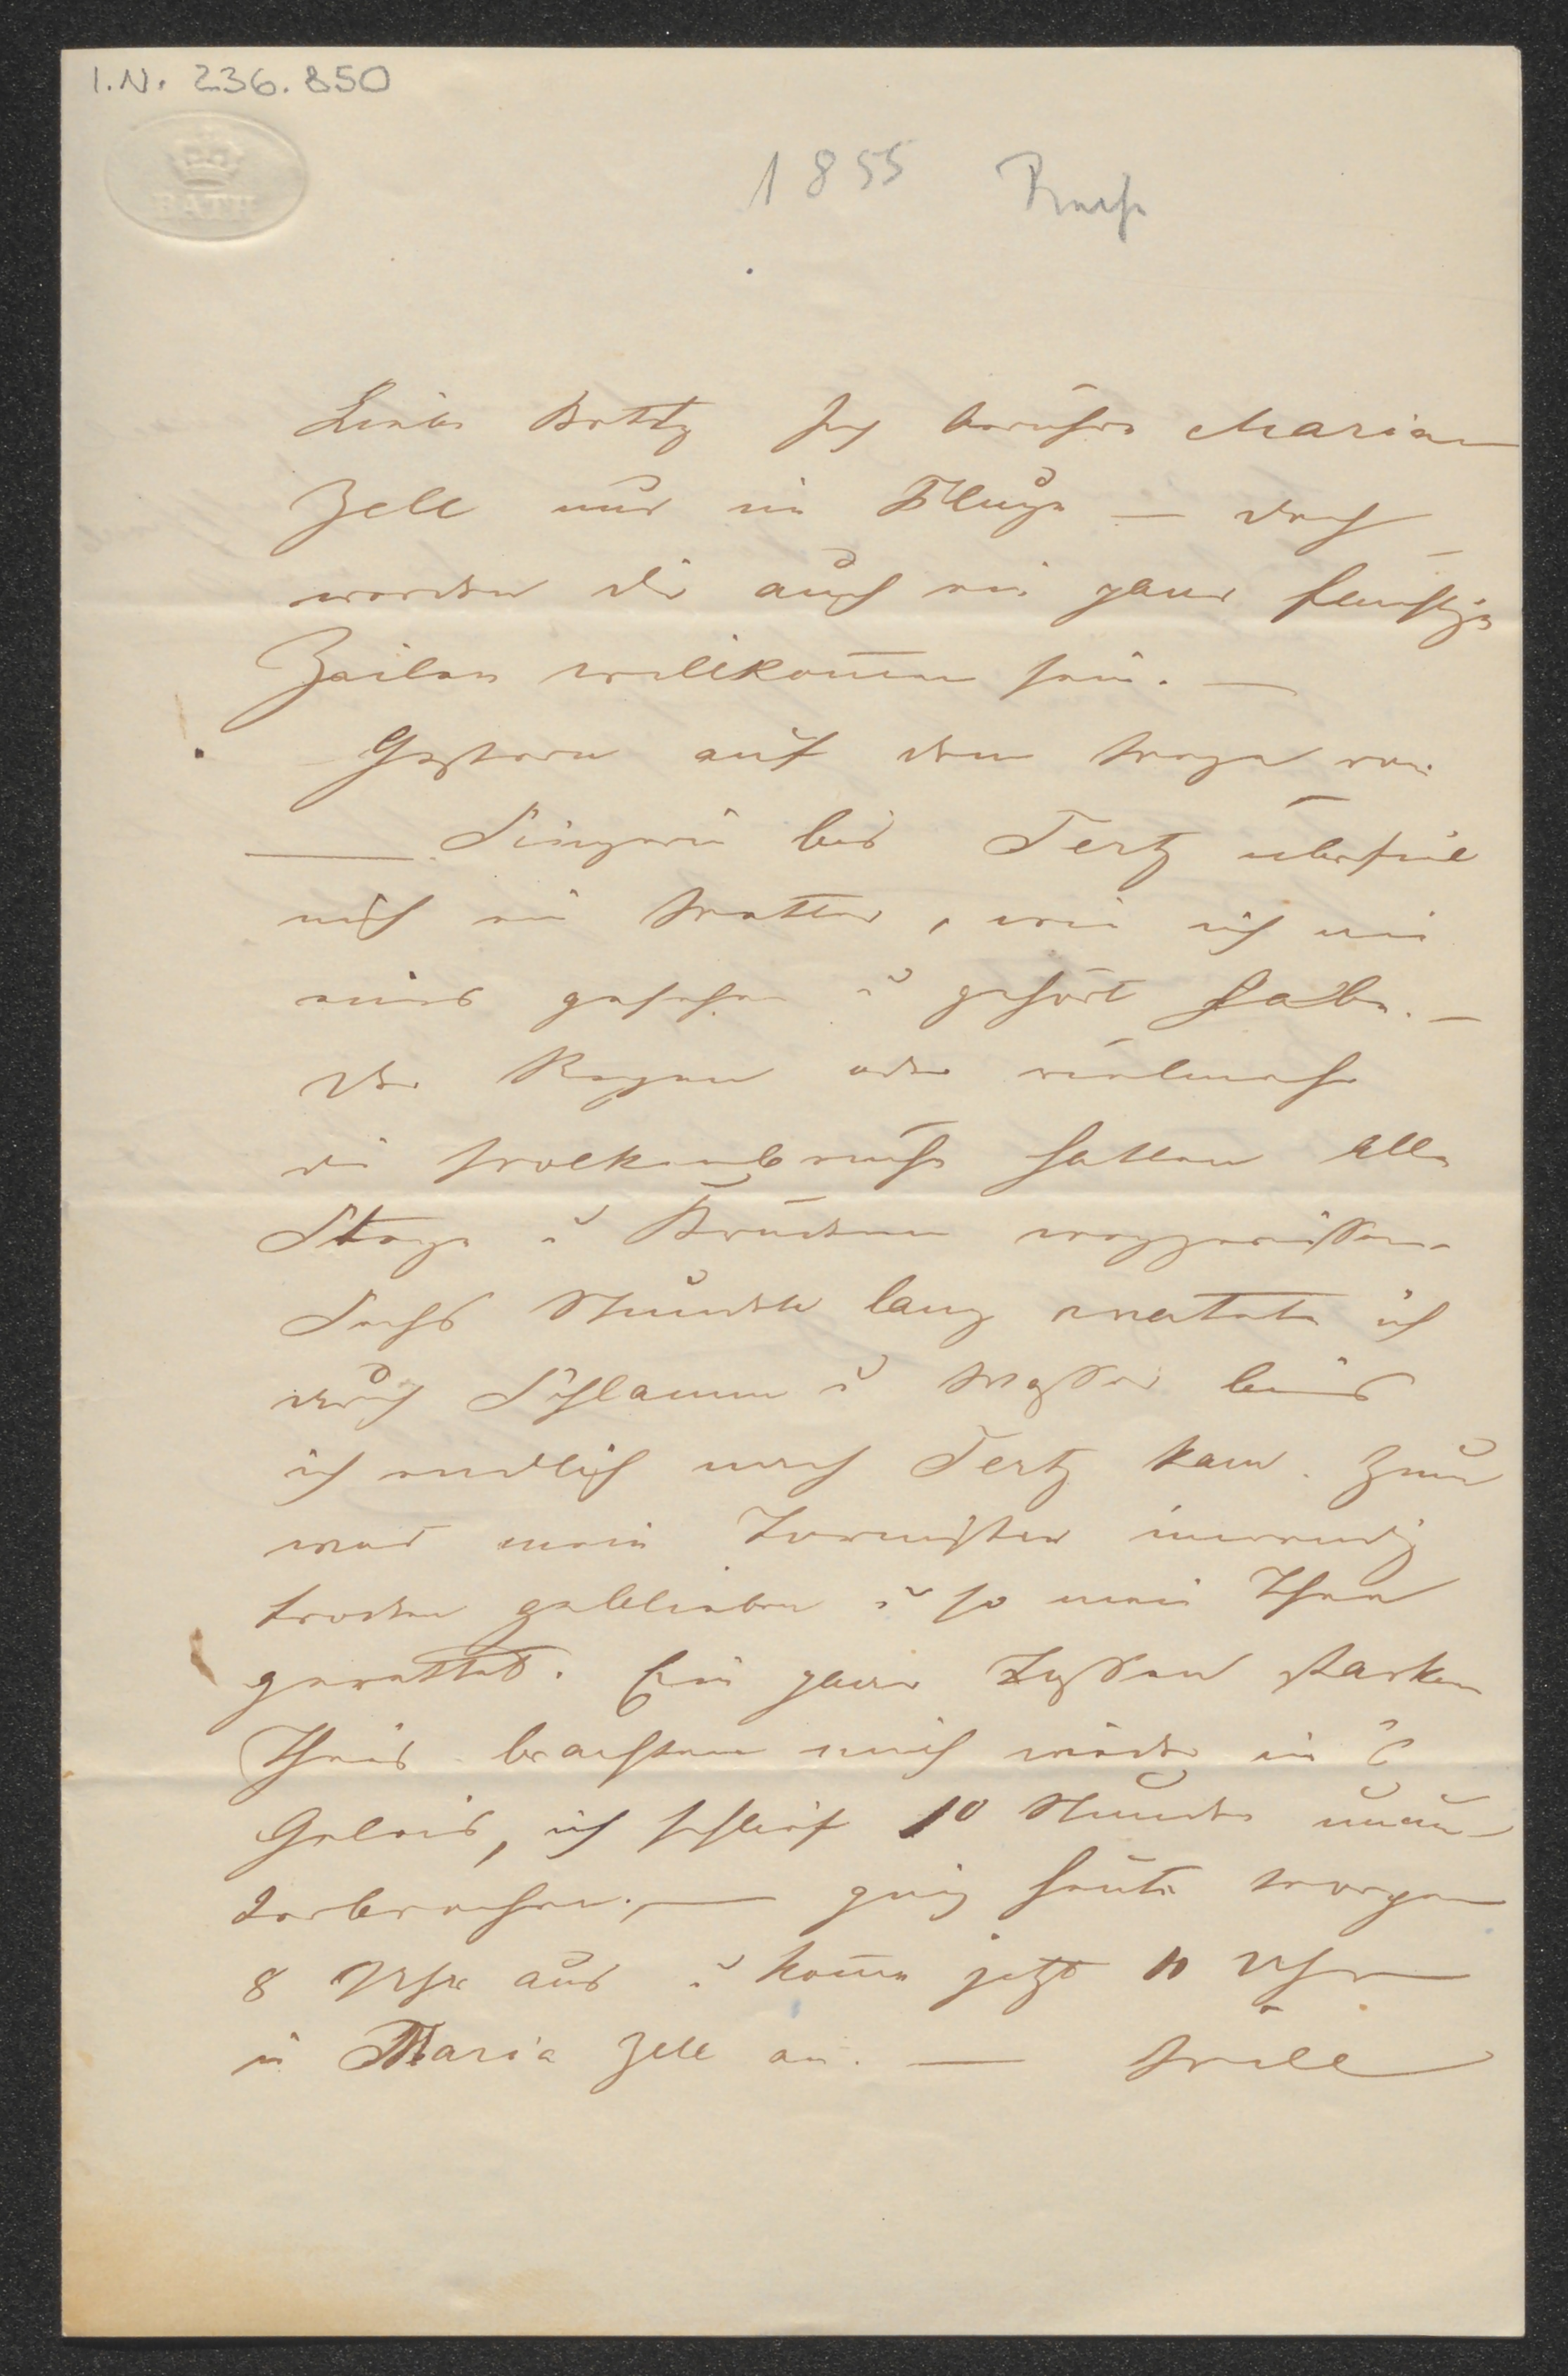 I.N. 236.850
BATH
1855
Liebe Betty Ich berühre Maria
Zell nur im Fluge — doch
werden dir auch ein paar flüchtige
Zeilen willkom̄en sein. —
Gestern auf dem Wege von
Singerin bis Tertz überfiel
mich ein Wetter, wie ich nie
eines gesehen u gehört habe. —
Der Regen oder vielmehr
die Wolkenbrüche hatten alle
Stege u Brücken weggerissen.
Sechs Stunden lang watete ich
durch Schlamm u Wasser bis
ich endlich nach Tertz kam. Zum
war mein Tornister inwendig
trocken geblieben u so mein Thee
gerettet. Ein paar Tassen starken
Thees brachten mich wieder in's
Geleis, ich schlief 10 Stunden unun-
terbrochen, — ging heute morgen
8 Uhr aus u kom̄e jetzt 10 Uhr
in Maria Zell an. — Will